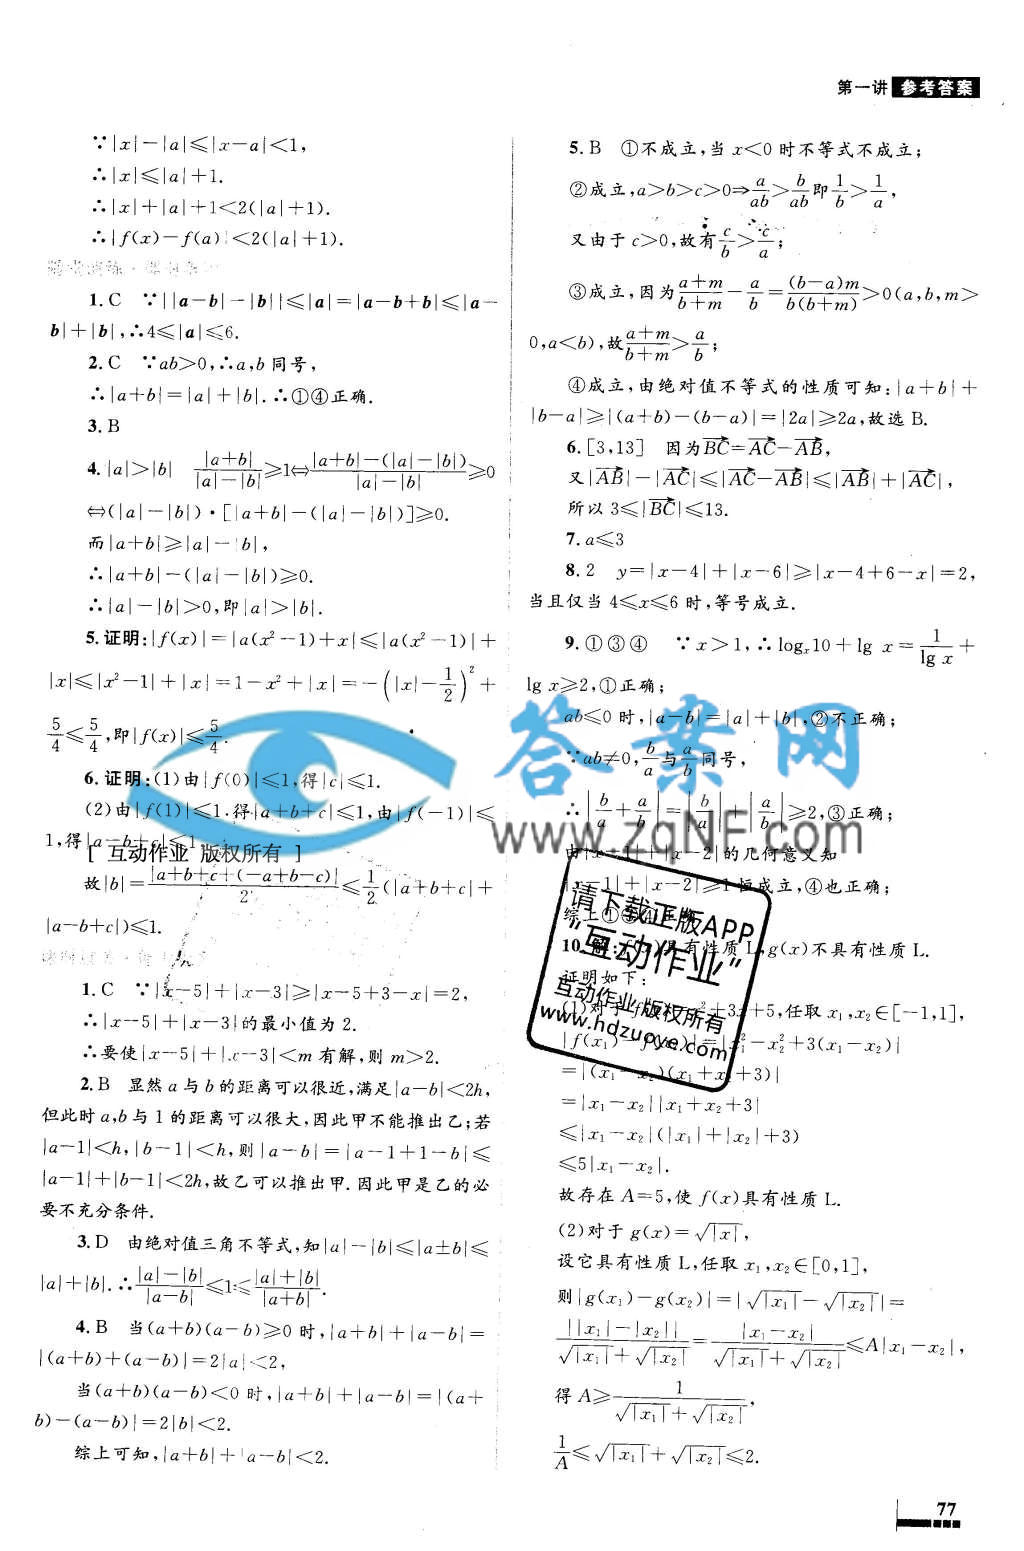 第一讲 参考答案
∵|x|－|a|≤|x－a|＜1，
∴|x|≤|a|＋1.
∴|x|＋|a|＋1＜2(|a|＋1).
∴|f(x)－f(a)|＜2(|a|＋1).
1. C ∵||a－b|－|b||≤|a|＝|a－b＋b|≤|a－
b|＋|b|，∴4≤|a|≤6.
2. C ∵ab＞0，∴a，b同号，
∴|a＋b|＝|a|＋|b|.∴①④正确.
3. B
4. |a|＞|b| |a＋b|/(|a|－|b|)≥1⇔(|a＋b|－(|a|－|b|))/(|a|－|b|)≥0
⇔(|a|－|b|)·[|a＋b|－(|a|－|b|)]≥0.
而|a＋b|≥|a|－|b|，
∴|a＋b|－(|a|－|b|)≥0.
∴|a|－|b|＞0，即|a|＞|b|.
5. 证明：|f(x)|＝|a(x²－1)＋x|≤|a(x²－1)|＋
|x|≤|x²－1|＋|x|＝1－x²＋|x|＝－(|x|－1/2)²＋
5/4≤5/4，即|f(x)|≤5/4.
6. 证明：(1)由|f(0)|≤1，得|c|≤1.
(2)由|f(1)|≤1.得|a＋b＋c|≤1，由|f(－1)|≤
1，得|a－b＋c|≤1
[ 互动作业 版权所有 ]
故|b|＝|a＋b＋c＋(－a＋b－c)|/2≤1/2(|a＋b＋c|＋
|a－b＋c|)≤1.
1. C ∵|x－5|＋|x－3|≥|x－5＋3－x|＝2，
∴|x－5|＋|x－3|的最小值为 2.
∴要使|x－5|＋|x－3|＜m 有解，则 m＞2.
2. B 显然 a 与 b 的距离可以很近，满足|a－b|＜2h，
但此时 a，b 与 1 的距离可以很大，因此甲不能推出乙；若
|a－1|＜h，|b－1|＜h，则|a－b|＝|a－1＋1－b|≤
|a－1|＋|b－1|＜2h，故乙可以推出甲.因此甲是乙的必
要不充分条件.
3. D 由绝对值三角不等式，知|a|－|b|≤|a±b|≤
|a|＋|b|.∴(|a|－|b|)/|a－b|≤1≤(|a|＋|b|)/|a＋b|.
4. B 当(a＋b)(a－b)≥0 时，|a＋b|＋|a－b|＝
|(a＋b)＋(a－b)|＝2|a|＜2，
当(a＋b)(a－b)＜0 时，|a＋b|＋|a－b|＝|(a＋
b)－(a－b)|＝2|b|＜2.
综上可知，|a＋b|＋|a－b|＜2.
5. B ①不成立，当 x＜0 时不等式不成立；
②成立，a＞b＞c＞0⇒a/ab＞b/ab即1/b＞1/a，
又由于 c＞0，故有c/b＞c/a；
③成立，因为(a＋m)/(b＋m)－a/b＝(b－a)m/b(b＋m)＞0(a，b，m＞
0，a＜b)，故(a＋m)/(b＋m)＞a/b；
④成立，由绝对值不等式的性质可知：|a＋b|＋
|b－a|≥|(a＋b)－(b－a)|＝|2a|≥2a，故选 B.
6. [3，13] 因为BC→＝AC→－AB→，
又|AB→|－|AC→|≤|AC→－AB→|≤|AB→|＋|AC→|，
所以 3≤|BC→|≤13.
7. a≤3
8. 2 y＝|x－4|＋|x－6|≥|x－4＋6－x|＝2，
当且仅当 4≤x≤6 时，等号成立.
9. ①③④ ∵x＞1，∴logₓ10＋lg x＝1/lg x＋
lg x≥2，①正确；
ab≤0 时，|a－b|＝|a|＋|b|，②不正确；
∵ab≠0，b/a与a/b同号，
∴|b/a＋a/b|＝|b/a|＋|a/b|≥2，③正确；
由|x－1|＋|x－2|的几何意义知
|x－1|＋|x－2|≥1 恒成立，④也正确；
综上①③④正确
10. 解：f(x)具有性质 L，g(x)不具有性质 L.
证明如下：
(1)对于 f(x)＝x²＋3x＋5，任取 x₁，x₂∈[－1，1]，
|f(x₁)－f(x₂)|＝|x₁²－x₂²＋3(x₁－x₂)|
＝|(x₁－x₂)(x₁＋x₂＋3)|
＝|x₁－x₂||x₁＋x₂＋3|
≤|x₁－x₂|(|x₁|＋|x₂|＋3)
≤5|x₁－x₂|.
故存在 A＝5，使 f(x)具有性质 L.
(2)对于 g(x)＝√|x|，
设它具有性质 L，任取 x₁，x₂∈[0，1]，
则|g(x₁)－g(x₂)|＝|√|x₁|－√|x₂||＝
||x₁|－|x₂||/(√|x₁|＋√|x₂|)＝|x₁－x₂|/(√|x₁|＋√|x₂|)≤A|x₁－x₂|，
得 A≥1/(√|x₁|＋√|x₂|)，
1/A≤√|x₁|＋√|x₂|≤2.
答案网
www.zqNF.com
请下载正版APP
“互动作业”
互动作业 版权所有
www.hdzuoye.com
77